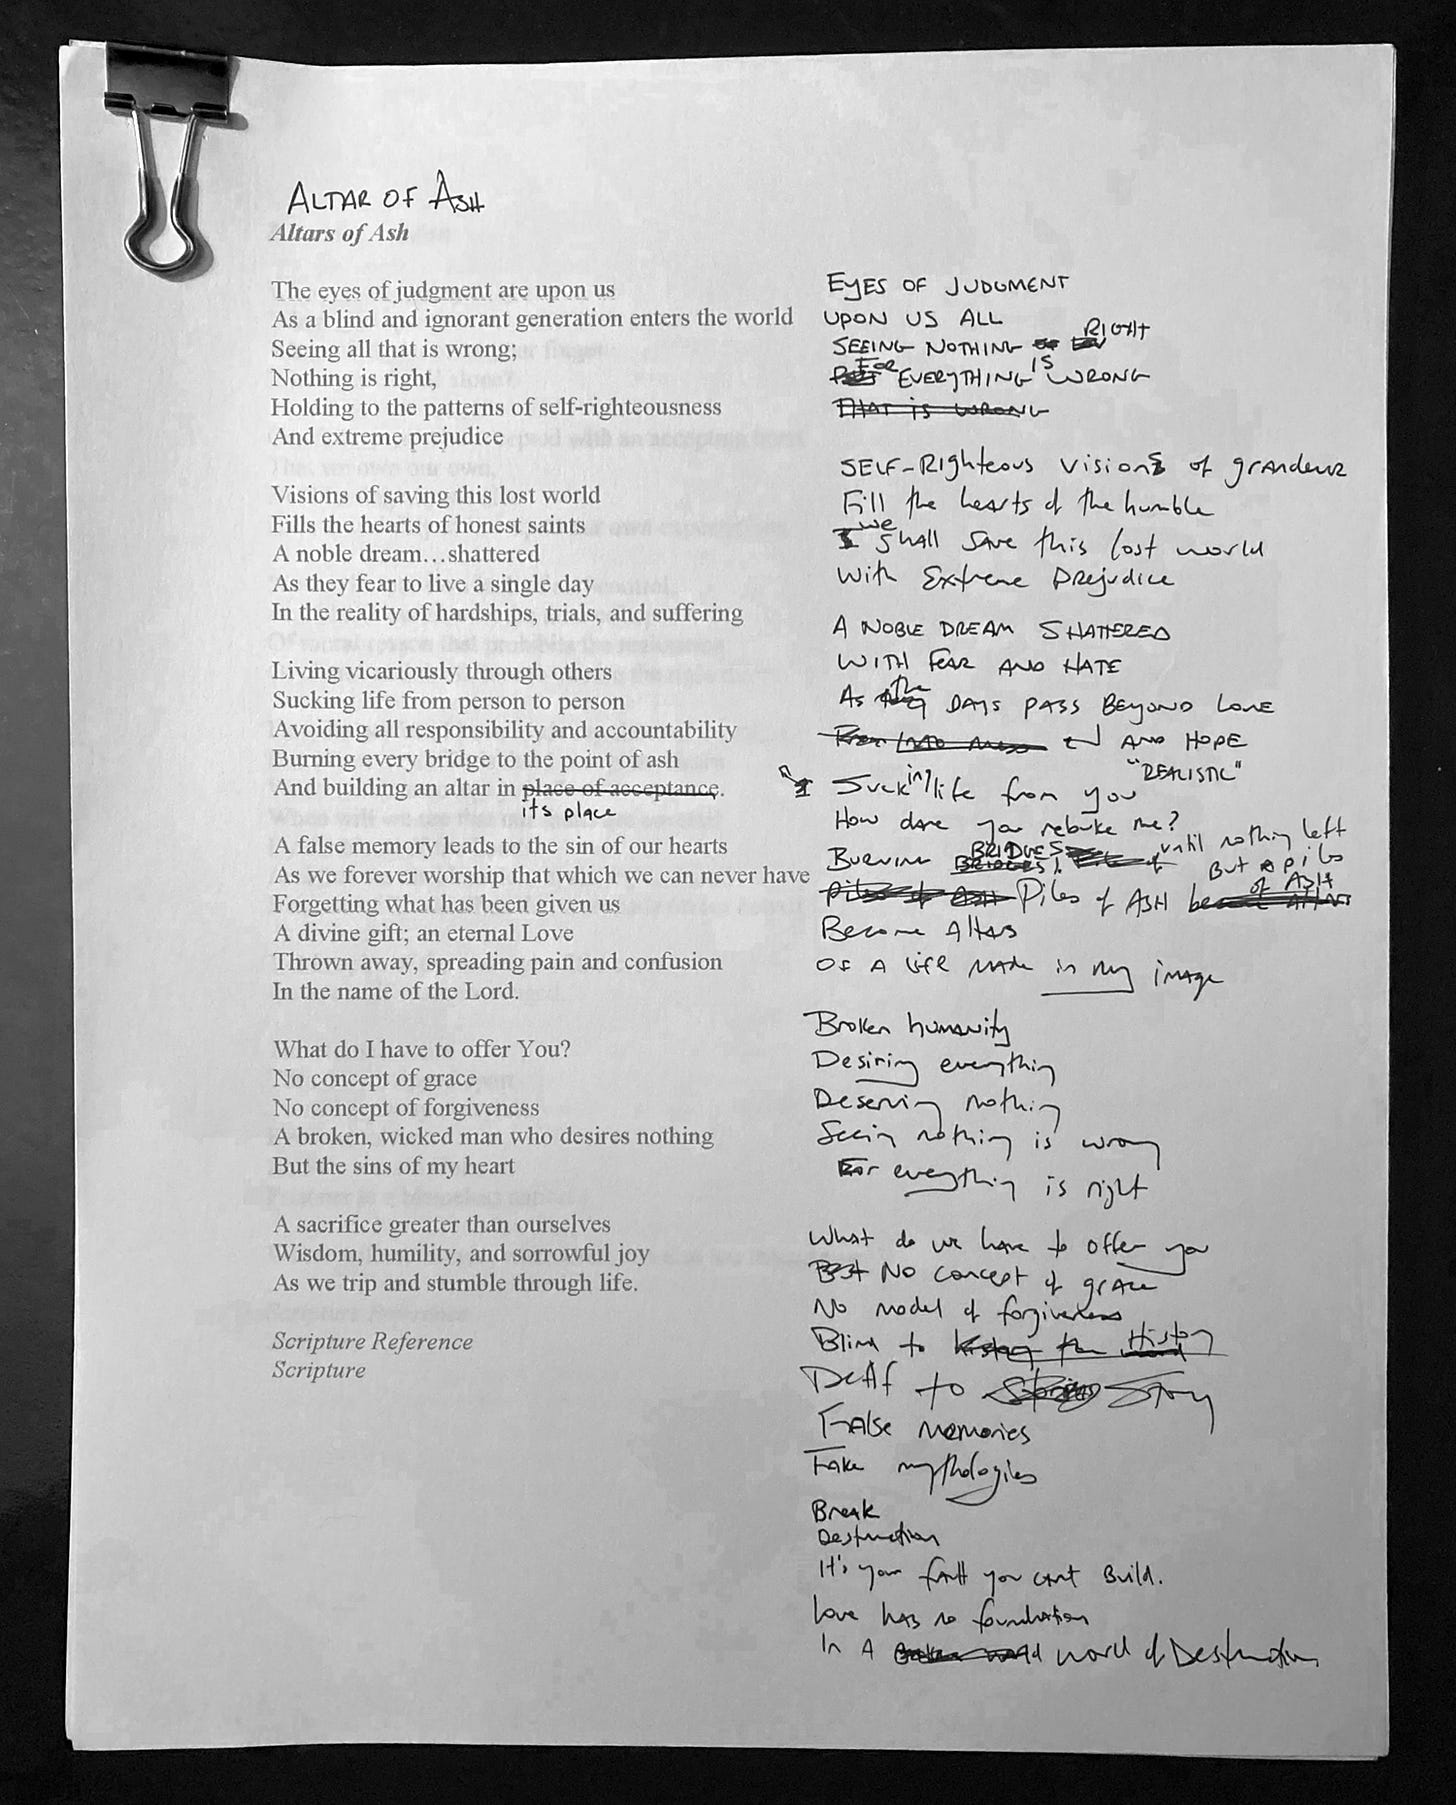 ALTAR OF ASH
Altars of Ash
The eyes of judgment are upon us
As a blind and ignorant generation enters the world
Seeing all that is wrong;
Nothing is right,
Holding to the patterns of self-righteousness
And extreme prejudice
Visions of saving this lost world
Fills the hearts of honest saints
A noble dream…shattered
As they fear to live a single day
In the reality of hardships, trials, and suffering
Living vicariously through others
Sucking life from person to person
Avoiding all responsibility and accountability
Burning every bridge to the point of ash
And building an altar in place of acceptance.
its place
A false memory leads to the sin of our hearts
As we forever worship that which we can never have
Forgetting what has been given us
A divine gift; an eternal Love
Thrown away, spreading pain and confusion
In the name of the Lord.
What do I have to offer You?
No concept of grace
No concept of forgiveness
A broken, wicked man who desires nothing
But the sins of my heart
A sacrifice greater than ourselves
Wisdom, humility, and sorrowful joy
As we trip and stumble through life.
Scripture Reference
Scripture
EYES OF JUDGMENT
UPON US ALL
SEEING NOTHING RIGHT
FOR EVERYTHING IS WRONG
THAT IS WRONG
SELF-Righteous visions of grandeur
Fill the hearts of the humble
we shall save this lost world
With Extreme Prejudice
A NOBLE DREAM SHATTERED
WITH FEAR AND HATE
As the DAYS PASS BEYOND LOVE
AND HOPE
"REALISTIC"
Sucking life from you
How dare you rebuke me?
Burning BRIDGES until nothing left
But a pile
of ASH
Piles of ASH
Become Altars
OF A LIFE MADE in my image
Broken humanity
Desiring everything
Deserving nothing
Seein nothing is wrong
For everything is right
What do we have to offer you
But No concept of grace
No model of forgiveness
Blind to History
Deaf to Story
False memories
Fake mythologies
Break
Destruction
It's your fault you can't Build.
Love has no foundation
In A world of Destruction